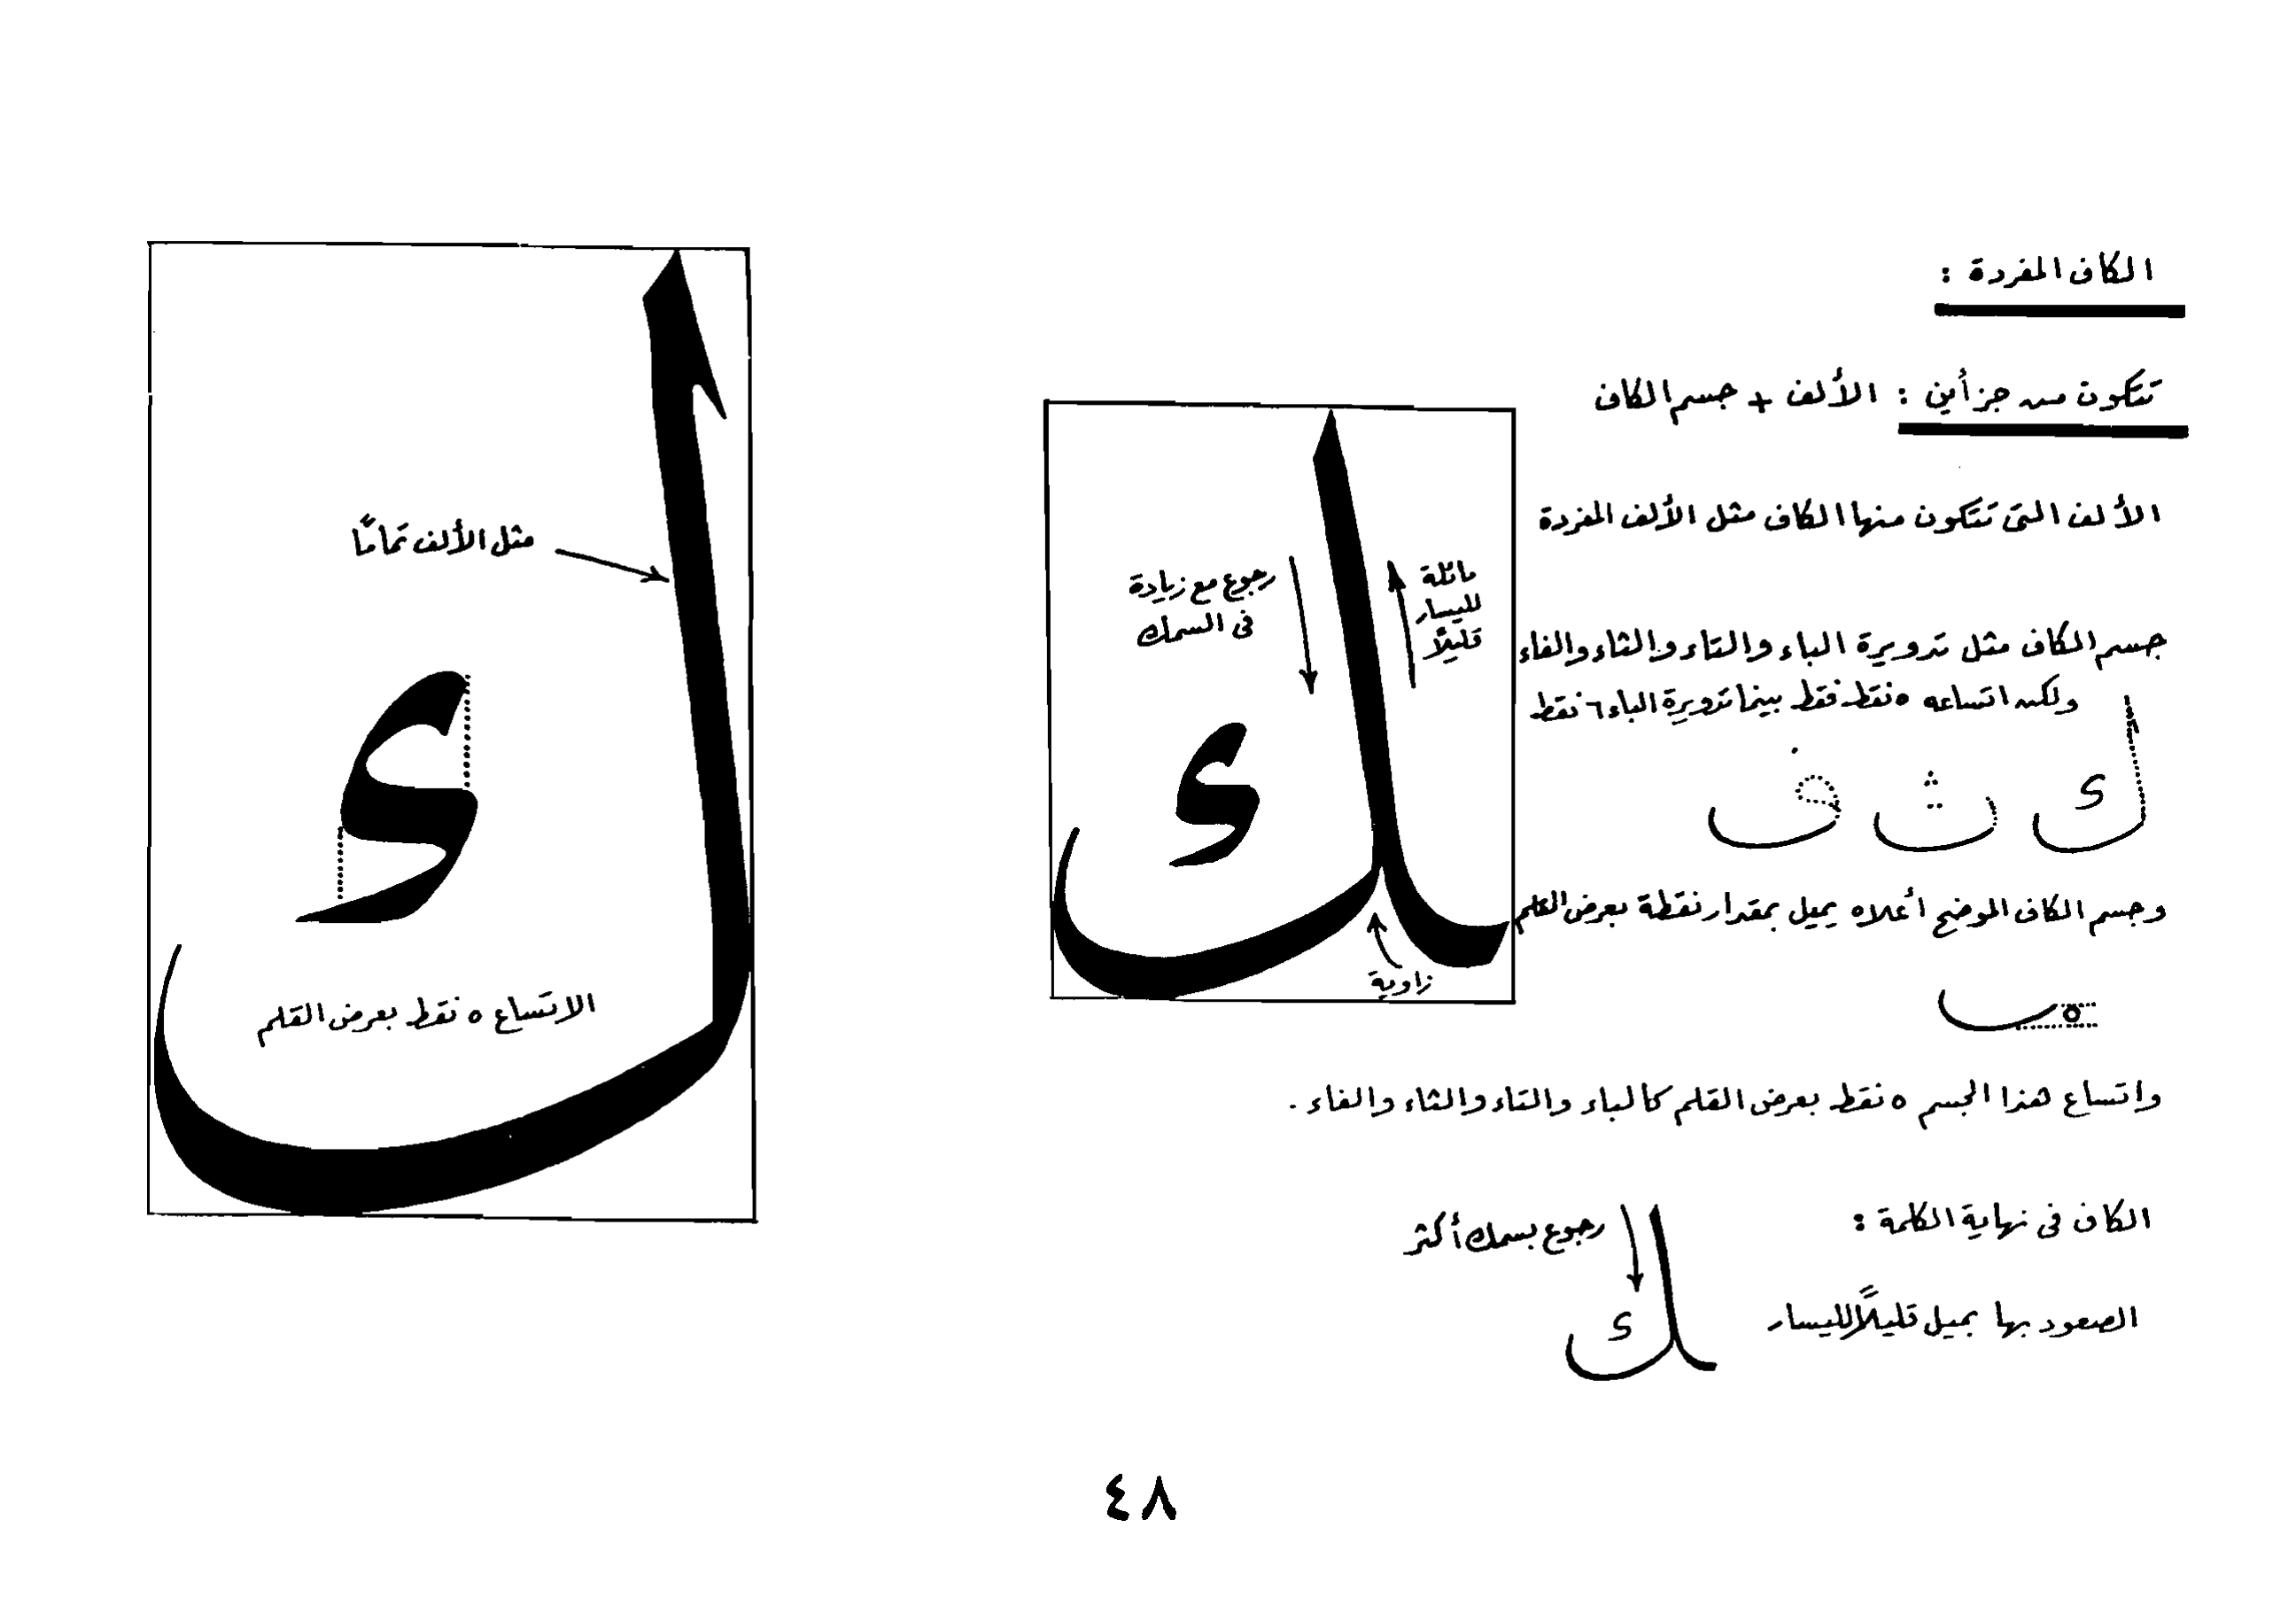 الكاف المفردة :
تتكون من جزأين : الألف + جسم الكاف
الألف التى تتكون منها الكاف مثل الألف المفردة
جسم الكاف مثل تدويرة الباء والتاء والثاء والفاء
ولكن اتساعه ٥ نقط فقط بينما تدويرة الباء ٦ نقط
ك ث ف
وجسم الكاف الموضح أعلاه يميل بمقدار نقطة بعرض القلم
واتساع هذا الجسم ٥ نقط بعرض القلم كالباء والتاء والثاء والفاء .
الكاف فى نهاية الكلمة :
الصعود بها بميل قليلاً لليسار
رجوع بسمك أكثر
ك
مائلة
لليسار
قليلاً
رجوع مع زيادة
فى السمك
ك
زاوية
مثل الألف تمامًا
ك
الاتساع ٥ نقط بعرض القلم
٤٨